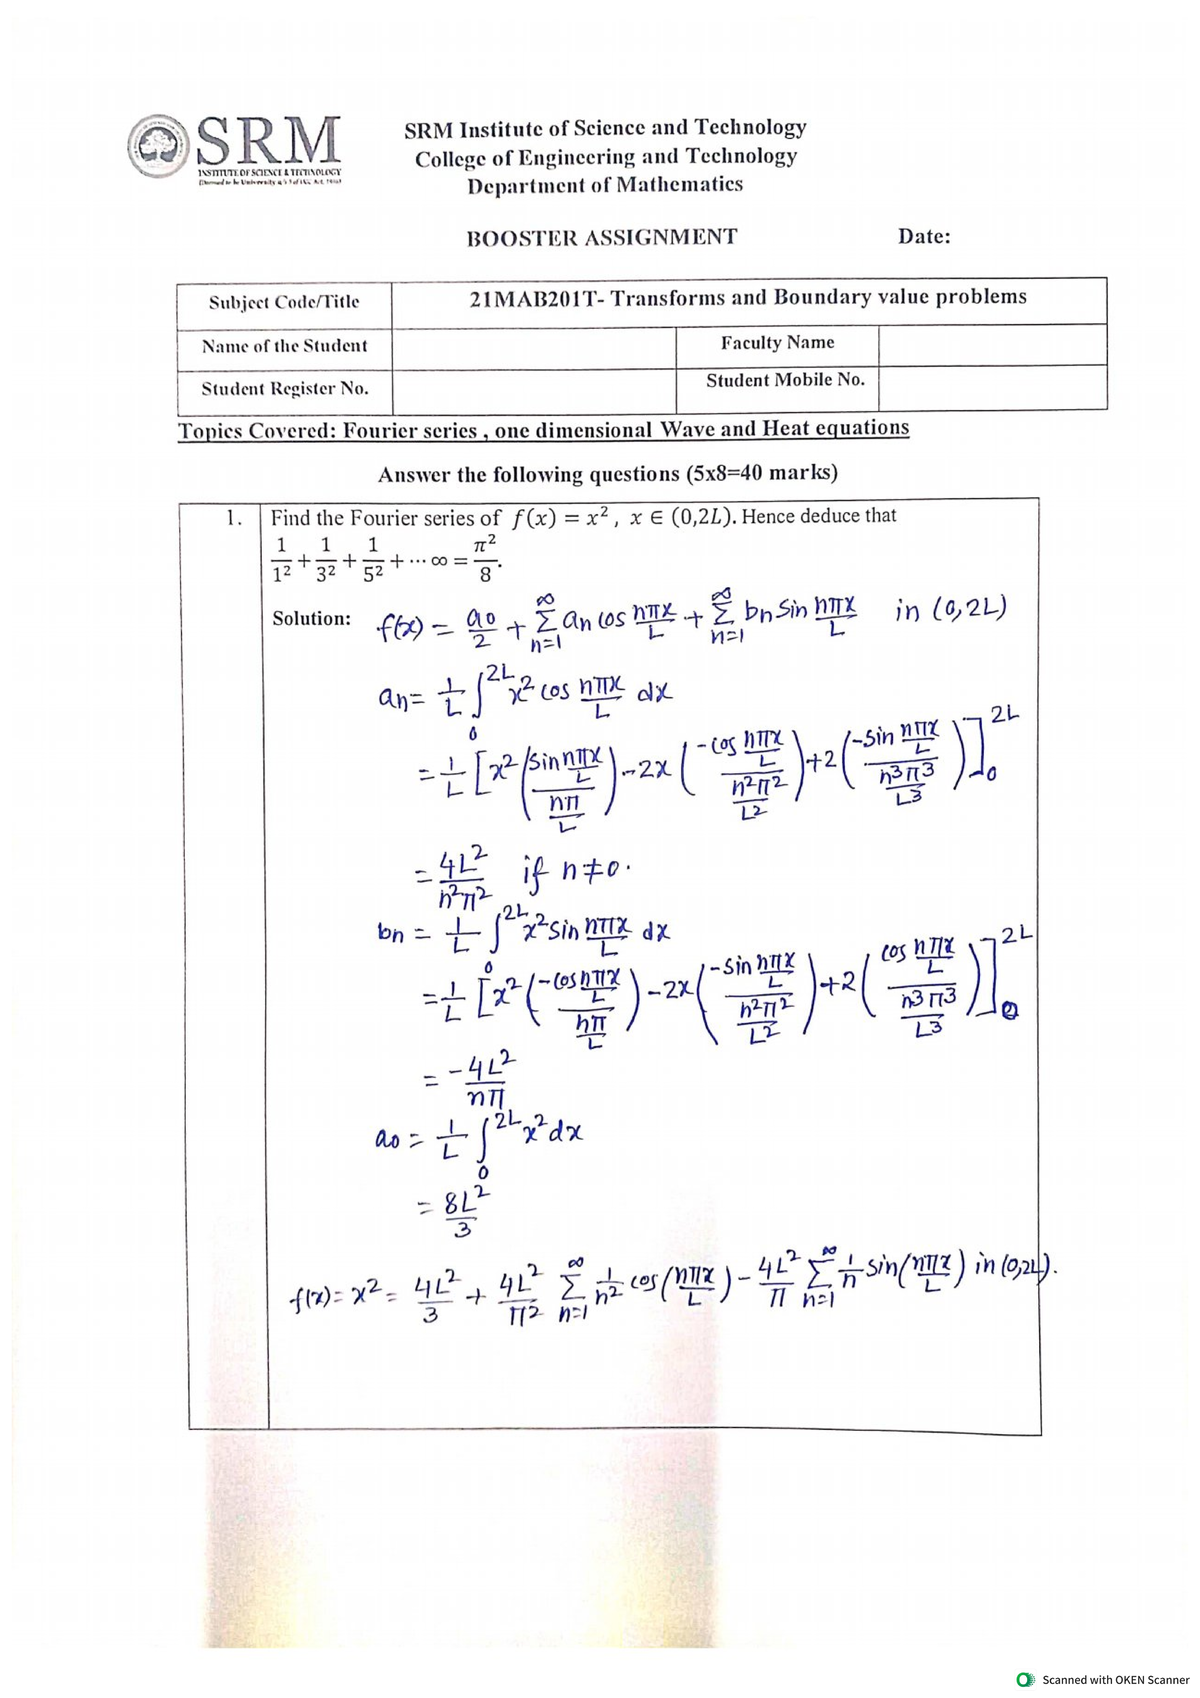 SRM
INSTITUTE OF SCIENCE & TECHNOLOGY
(Deemed to be University u/s 3 of UGC Act, 1956)
SRM Institute of Science and Technology
College of Engineering and Technology
Department of Mathematics
BOOSTER ASSIGNMENT Date:
Subject Code/Title 21MAB201T- Transforms and Boundary value problems
Name of the Student Faculty Name
Student Register No. Student Mobile No.
Topics Covered: Fourier series , one dimensional Wave and Heat equations
Answer the following questions (5x8=40 marks)
1. Find the Fourier series of f(x) = x², x ∈ (0,2L). Hence deduce that
1/1² + 1/3² + 1/5² + ⋯ ∞ = π²/8.
Solution: f(x) = a0/2 + ∑_{n=1}^{∞} an cos nπx/L + ∑_{n=1}^{∞} bn sin nπx/L in (0,2L)
an = 1/L ∫_0^{2L} x² cos nπx/L dx
= 1/L [x² (sin nπx/L / nπ/L) - 2x (-cos nπx/L / n²π²/L²) + 2 (-sin nπx/L / n³π³/L³)]_0^{2L}
= 4L²/n²π² if n≠0.
bn = 1/L ∫_0^{2L} x² sin nπx/L dx
= 1/L [x² (-cos nπx/L / nπ/L) - 2x (-sin nπx/L / n²π²/L²) + 2 (cos nπx/L / n³π³/L³)]_0^{2L}
= -4L²/nπ
a0 = 1/L ∫_0^{2L} x² dx
= 8L²/3
f(x) = x² = 4L²/3 + 4L²/π² ∑_{n=1}^{∞} 1/n² cos(nπx/L) - 4L²/π ∑_{n=1}^{∞} 1/n sin(nπx/L) in (0,2L).
Scanned with OKEN Scanner